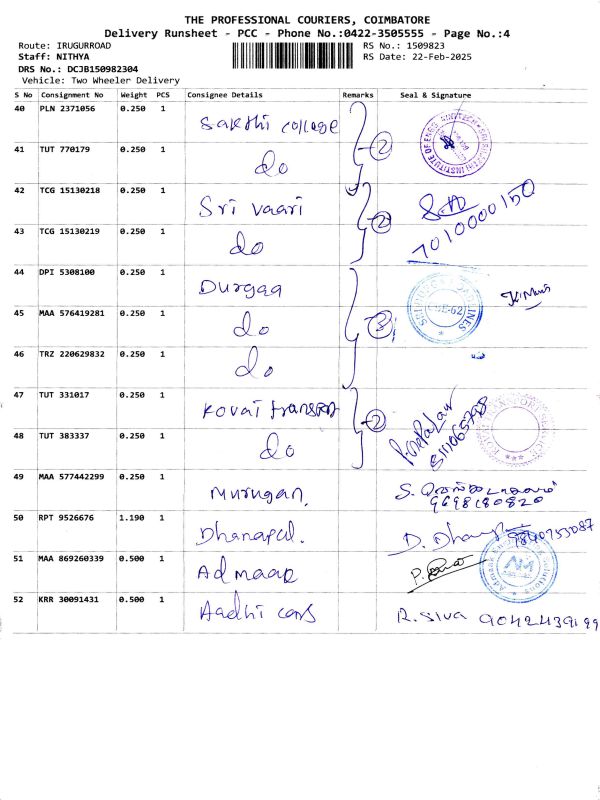 THE PROFESSIONAL COURIERS, COIMBATORE
Delivery Runsheet - PCC - Phone No.:0422-3505555 - Page No.:4
Route: IRUGURROAD
RS No.: 1509823
Staff: NITHYA
RS Date: 22-Feb-2025
DRS No.: DCJB150982304
Vehicle: Two Wheeler Delivery
S No Consignment No Weight PCS Consignee Details Remarks Seal & Signature
40 PLN 2371056 0.250 1 Sakthi college
41 TUT 770179 0.250 1 do 2
42 TCG 15130218 0.250 1 Sri vaari
43 TCG 15130219 0.250 1 do 2 7010000150
44 DPI 5308100 0.250 1 Durgaa
45 MAA 576419281 0.250 1 do 3
46 TRZ 220629832 0.250 1 do
47 TUT 331017 0.250 1 Kovai transport 2
48 TUT 383337 0.250 1 do
49 MAA 577442299 0.250 1 Murugan. S. 9698180820
50 RPT 9526676 1.190 1 Dhanapal. D.
51 MAA 869260339 0.500 1 Admaap AM
52 KRR 30091431 0.500 1 Aadhi cars R. Siva 9042439199